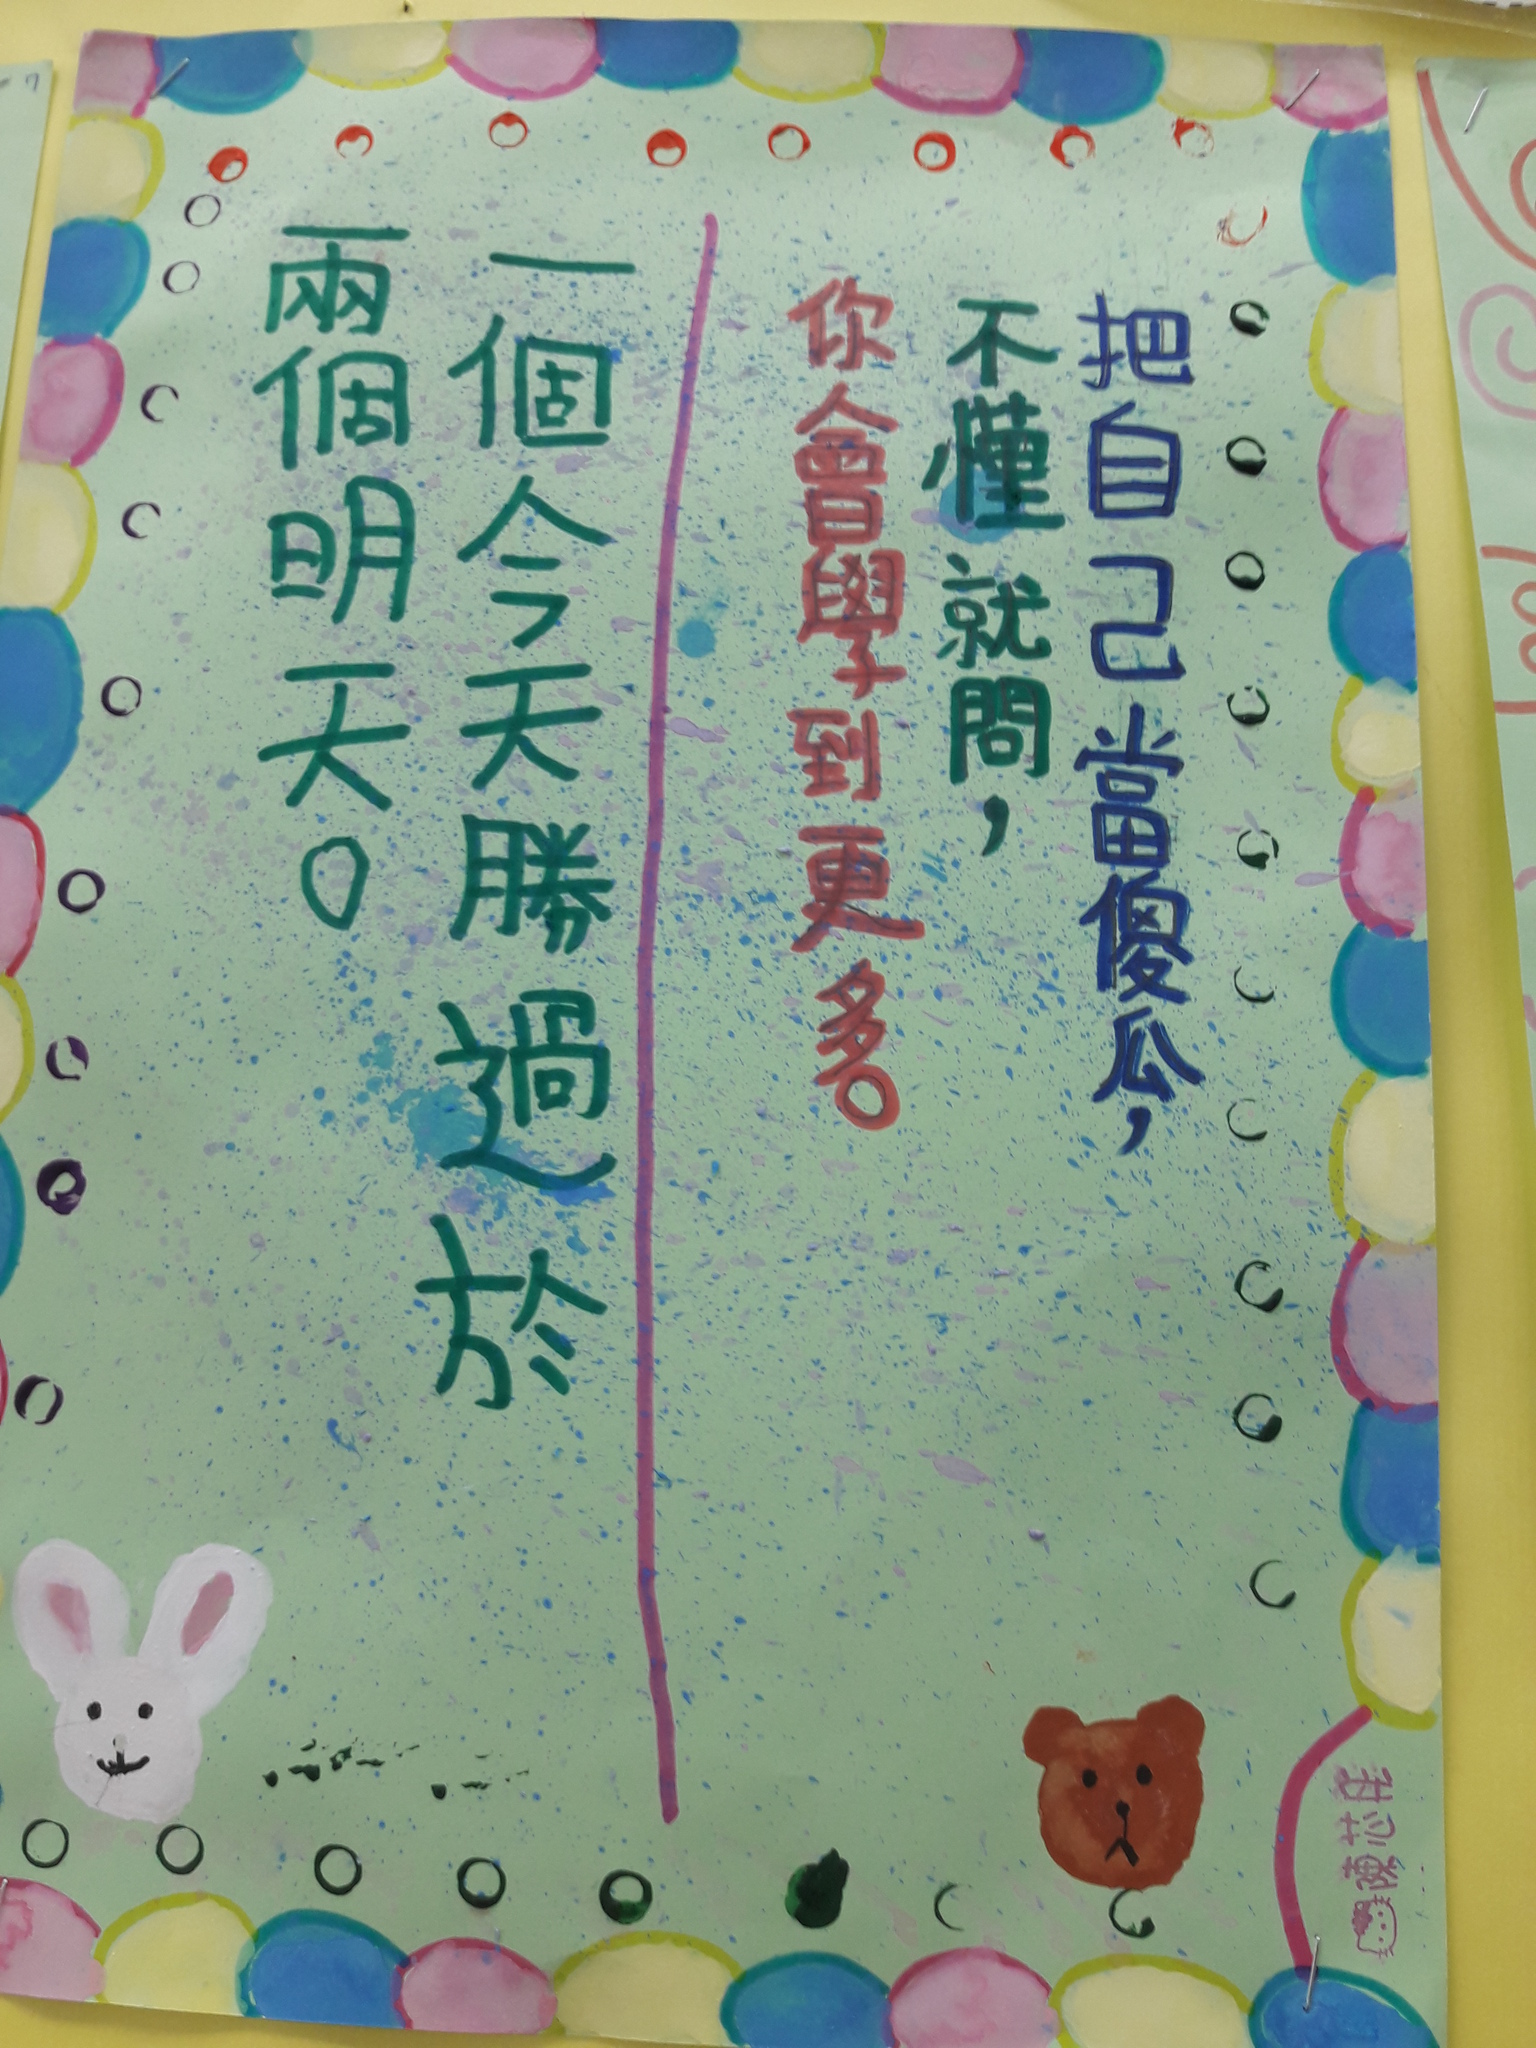 把自己當傻瓜，
不懂就問，
你會學到更多。
一個今天勝過於
兩個明天。